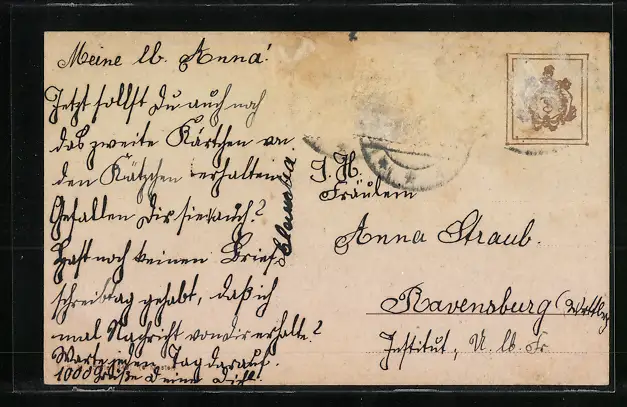 Meine lb. Anna!
Jetzt sollst Du auch noch
das zweite Kärtchen von
den Kätzchen erhalten
Gefallen Dir sie auch?
Hast noch keinen Brief-
schreibtag gehabt, daß ich
mal Nachricht von dir erhalte?
Warte jeden Tag darauf.
1000 Grüße Deine Dich
I. H.
Fräulein
Anna Straub.
Ravensburg (Wrttbg
Institut, U. lb. Fr.